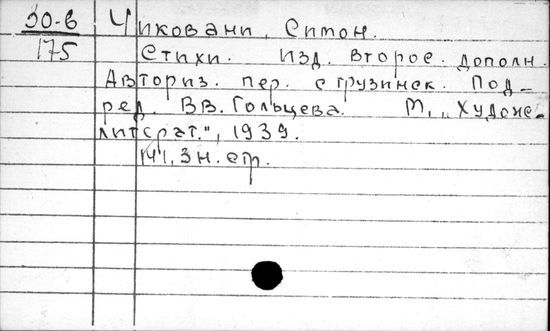 30-6 Чиковани, Симон.
175 Стихи. Изд. второе. дополн.
Авториз. пер. с грузинск. Под-
ред. В.В. Гольцева. М., „Художе-
литерат.", 1939.
141, 3 н. стр.